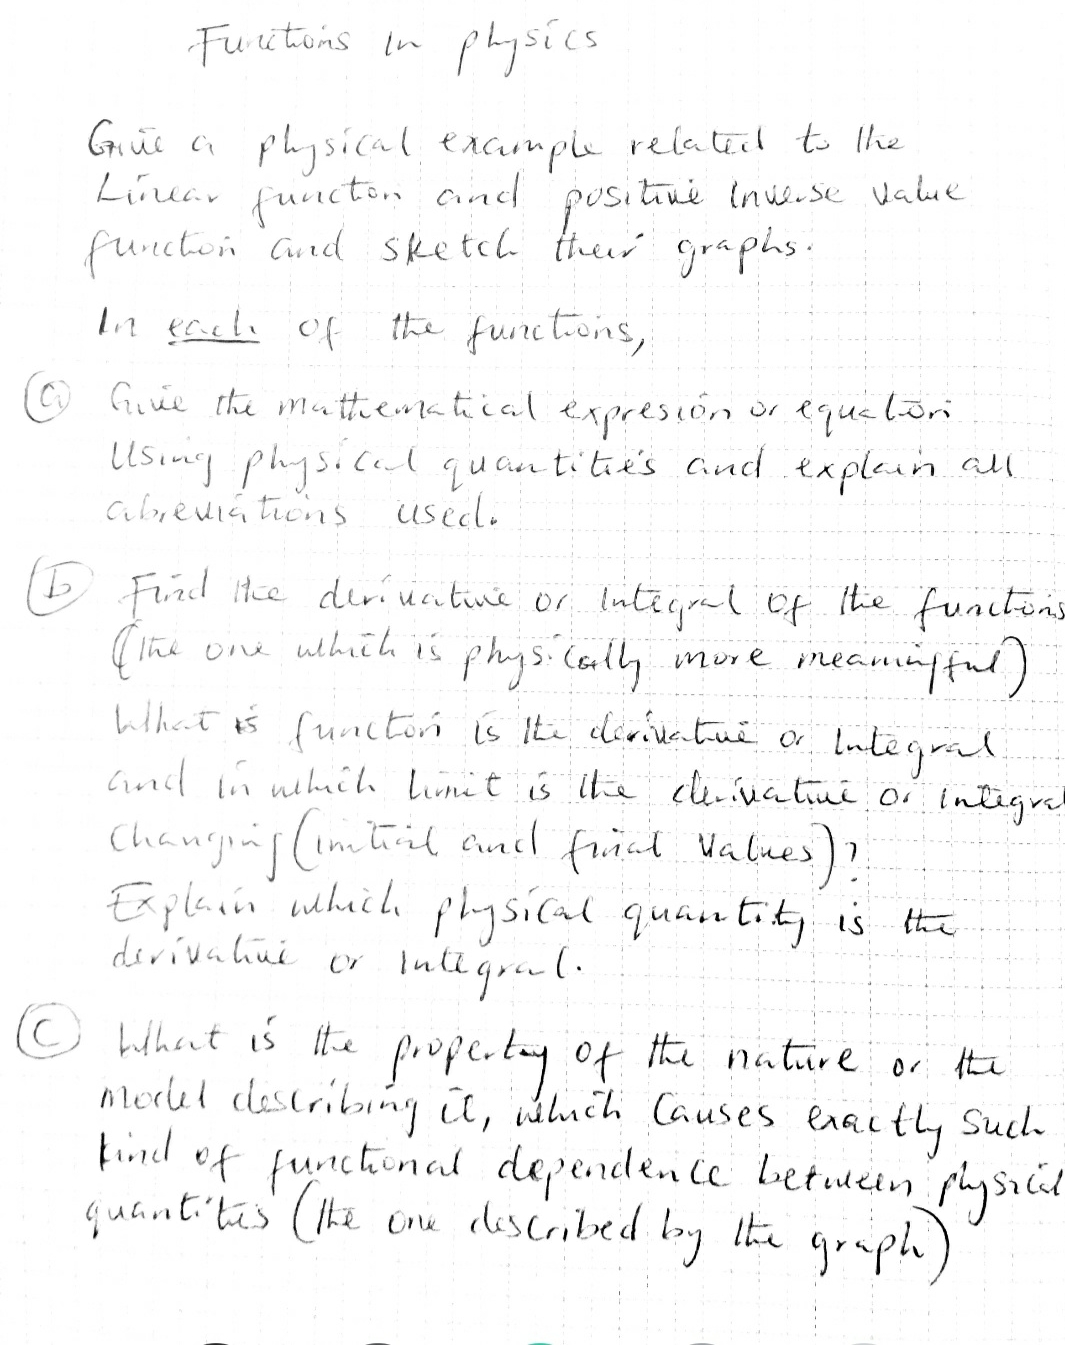 Functions in physics
Give a physical example related to the
Linear function and positive Inverse value
function and sketch their graphs.
In each of the functions,
a Give the mathematical expresion or equation
Using physical quantities and explain all
abreviations used.
b Find the derivative or Integral of the functions
(the one which is physically more meaningful)
What is function is the derivative or Integral
and in which limit is the derivative or integral
Changing (initial and final Values)?
Explain which physical quantity is the
derivative or Integral.
C What is the property of the nature or the
Model describing it, which Causes exactly Such
kind of functional dependence between physical
quantities (the one described by the graph)